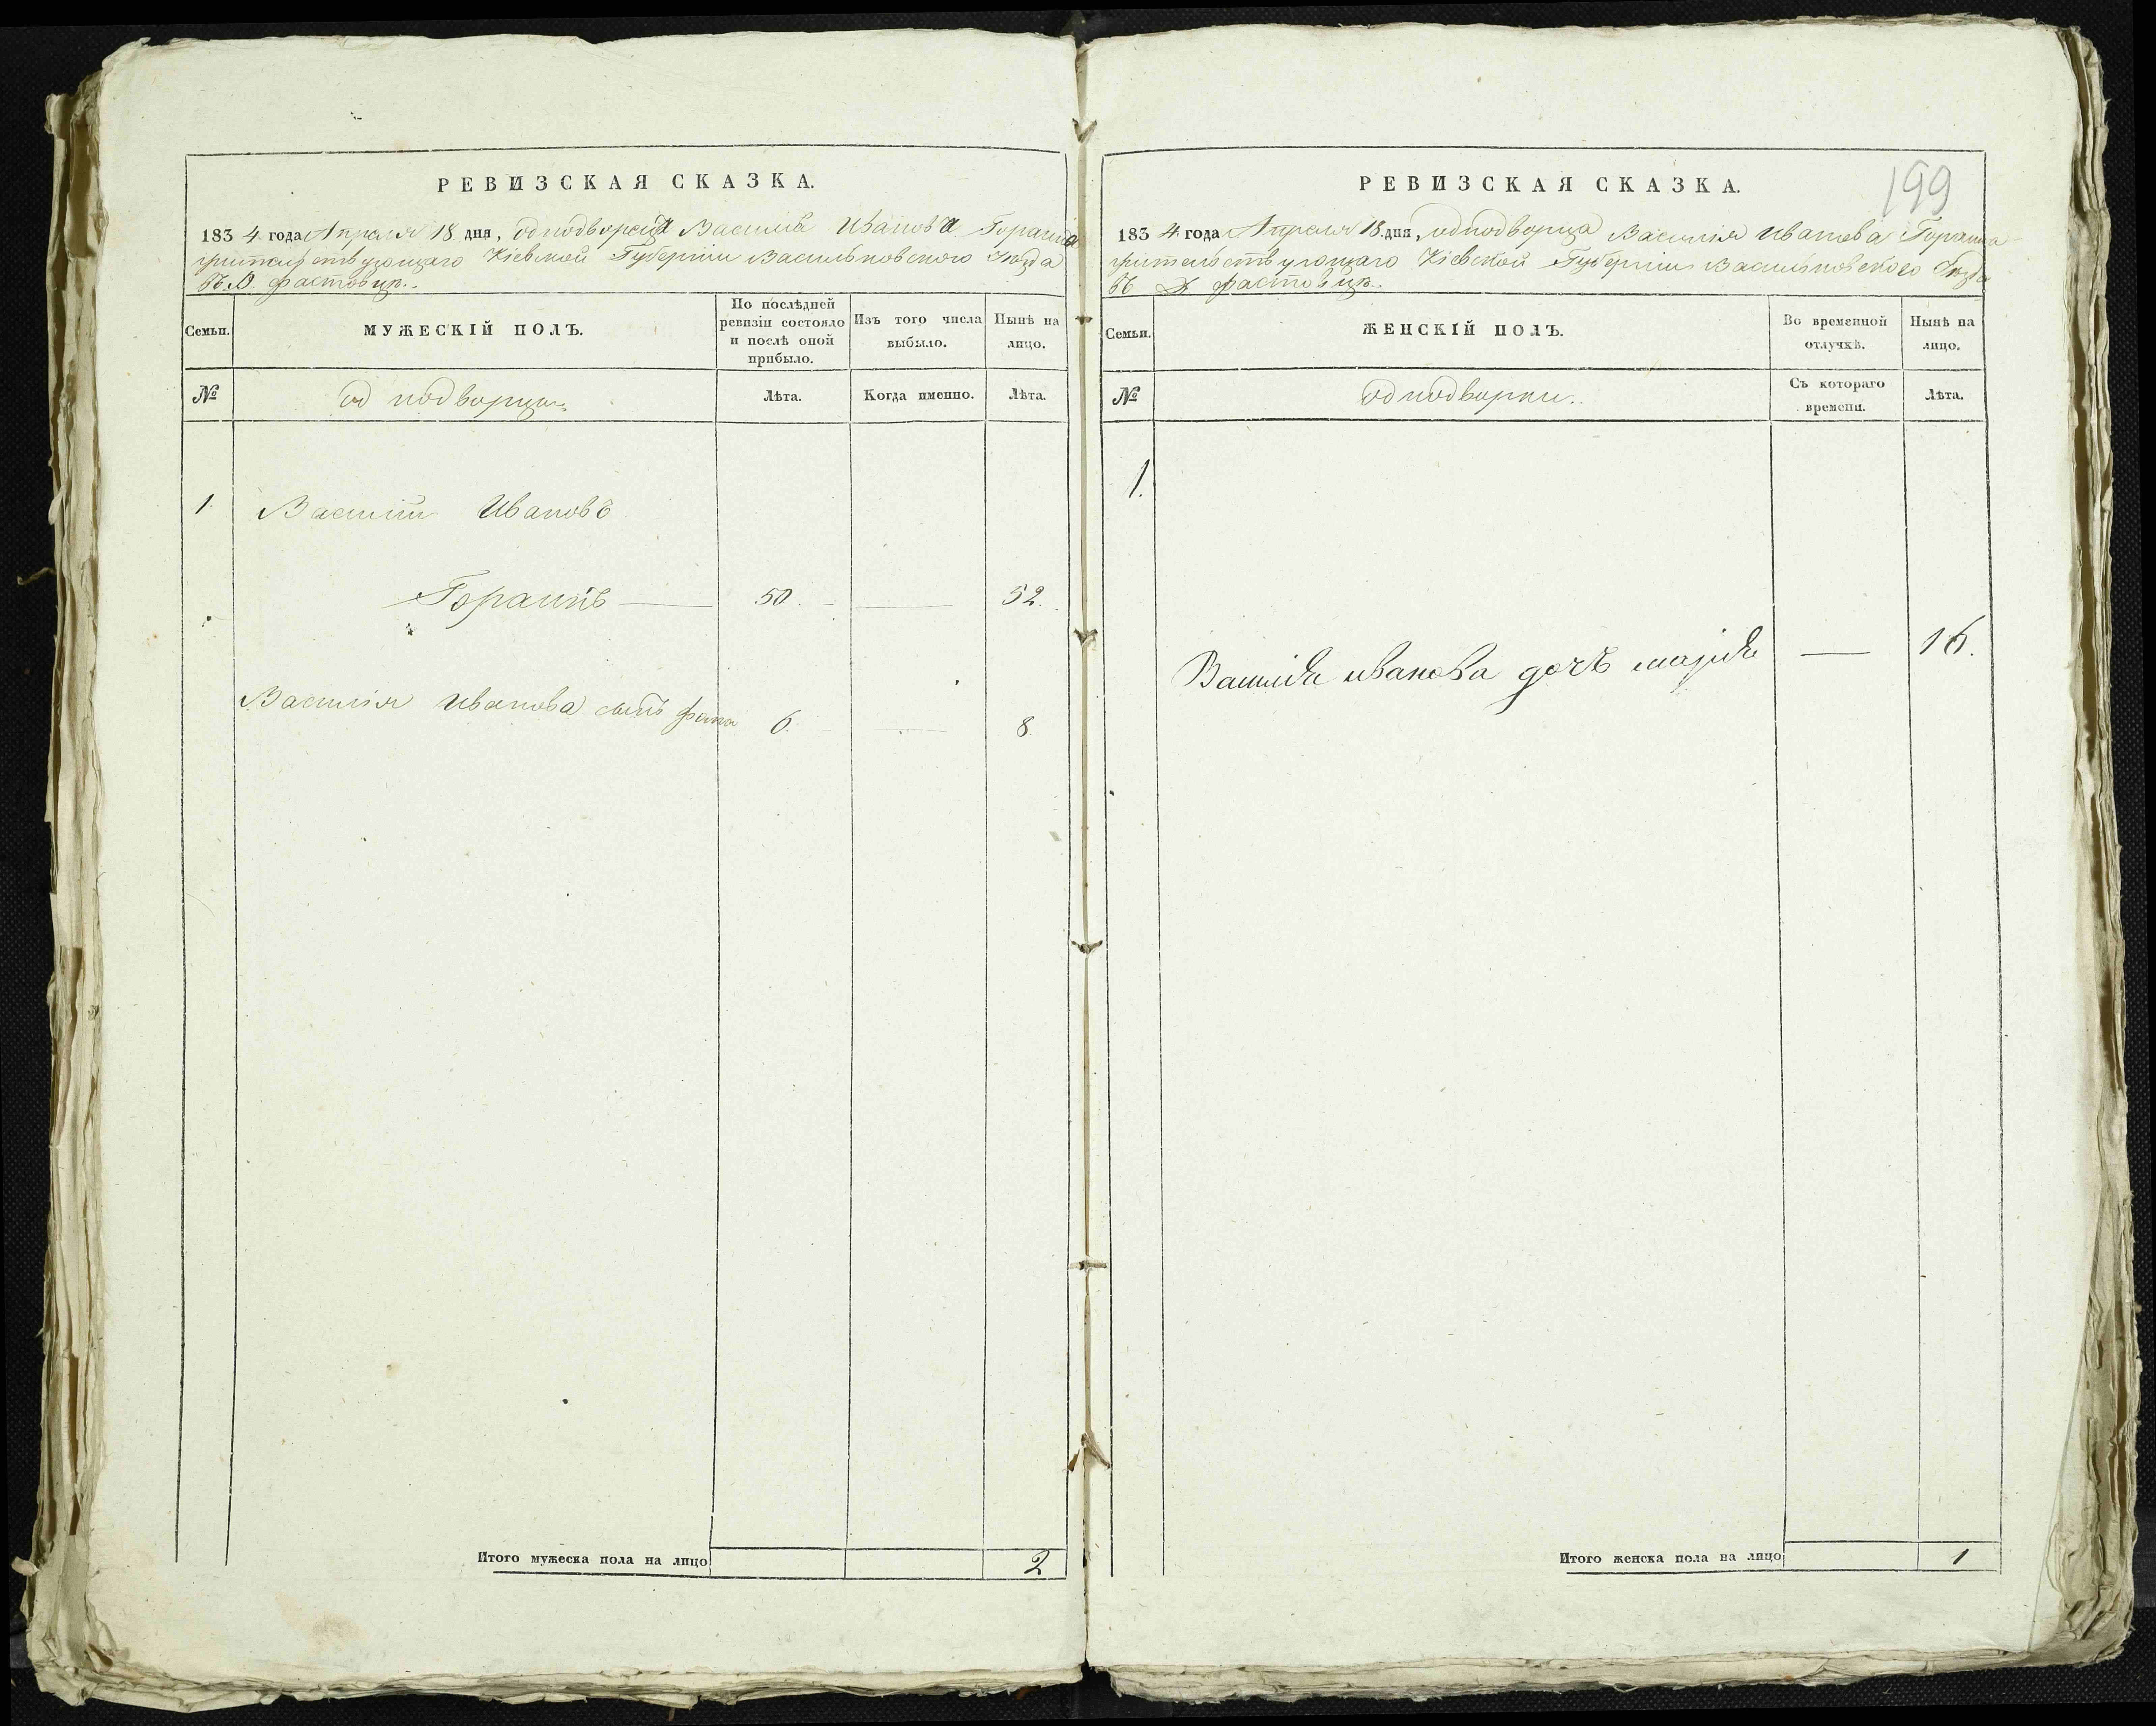 РЕВИЗСКАЯ СКАЗКА.
1834 года Апреля 18 дня, однодворца Василия Иванова
жительствующаго Кіевской Губерніи Васильковского Уезда
въ Фастовцѣ.
Семьи.
МУЖЕСКІЙ ПОЛЪ.
По послѣдней ревизіи состояло и послѣ оной прибыло.
Изъ того числа выбыло.
Нынѣ на лицо.
№
однодворцы
Лѣта.
Когда именно.
Лѣта.
1.
Василій Ивановъ
50. — 52.
Василія Иванова сынъ
6. — 8
Итого мужеска пола на лицо
2
199
РЕВИЗСКАЯ СКАЗКА.
1834 года Апреля 18 дня, однодворца Василія Иванова
жительствующаго Кіевской Губерніи Васильковского Уезда
въ Фастовцѣ.
Семьи.
ЖЕНСКІЙ ПОЛЪ.
Во временной отлучкѣ.
Нынѣ на лицо.
№
однодворки.
Съ котораго времени.
Лѣта.
1.
Василія иванова дочъ марія — 16.
Итого женска пола на лицо
1